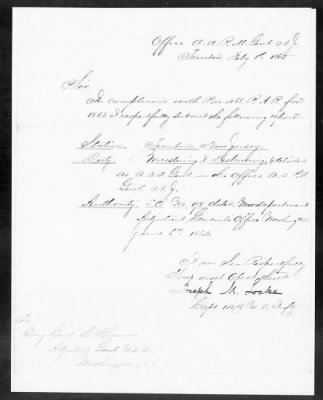 Office A. A. P. M. Genl. N. J.
Trenton Feby 1st 1865
Sir
In compliance with Par 468 R.A.R. for
1863 I respectfully submit the following report.
Station. Trenton New Jersey
Duty. Mustering & Disbursing
as A. A. A. Genl. in the Office A. A. P. M.
Genl. N. J.
Authority. S.O. No 198 dated War Department
Adjutant Generals Office Washington
June 6th 1864.
I am Sir Respectfully
Your most Obdt Servt
Joseph M. Locke
Capt 14th U. S. Infy
To
Brig Genl L. Thomas
Adjutant Genl U.S.A.
Washington D.C.